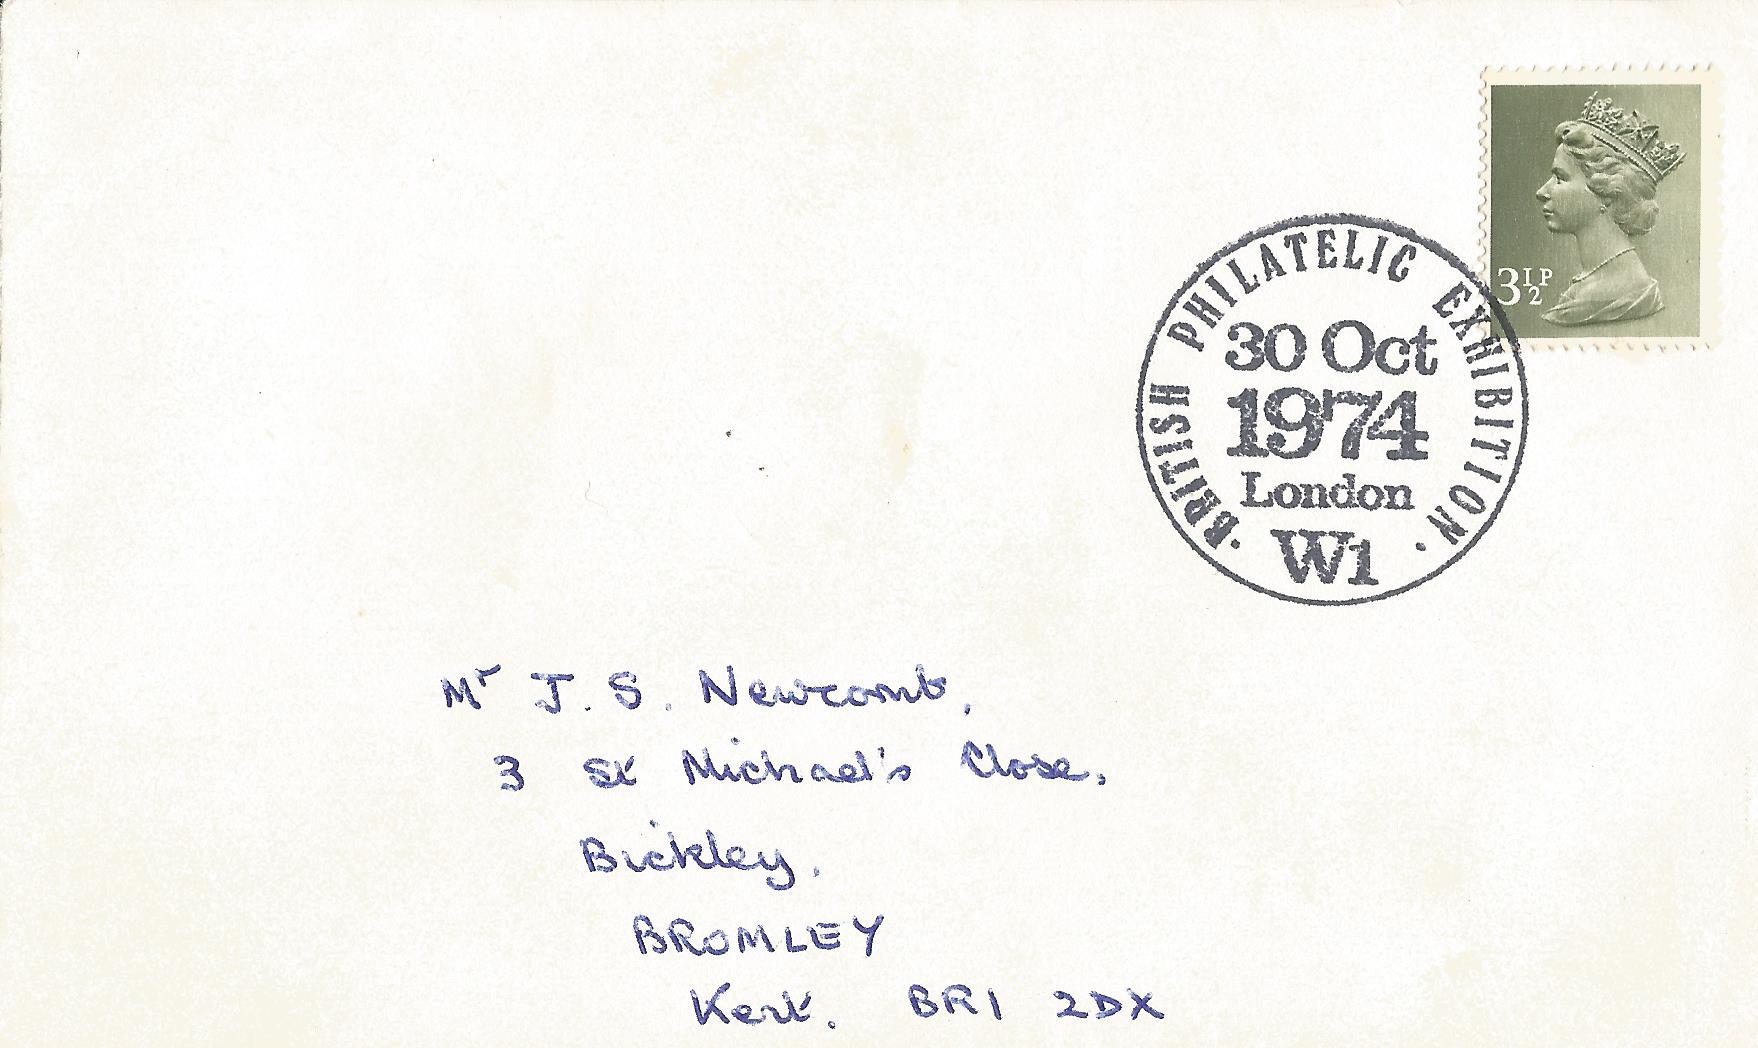 3½P
· BRITISH PHILATELIC EXHIBITION ·
30 Oct
1974
London
W1
Mr J. S. Newcomb,
3 St Michael's Close,
Bickley,
BROMLEY
Kent. BR1 2DX